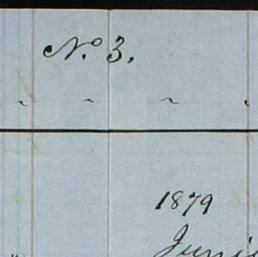 No 3.
" " " "
1879
Juni